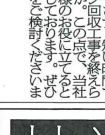 ン回収工事を終えら
が、この点で、当社
様のお役に立てると
ております。ぜひ
をご検討くださいま